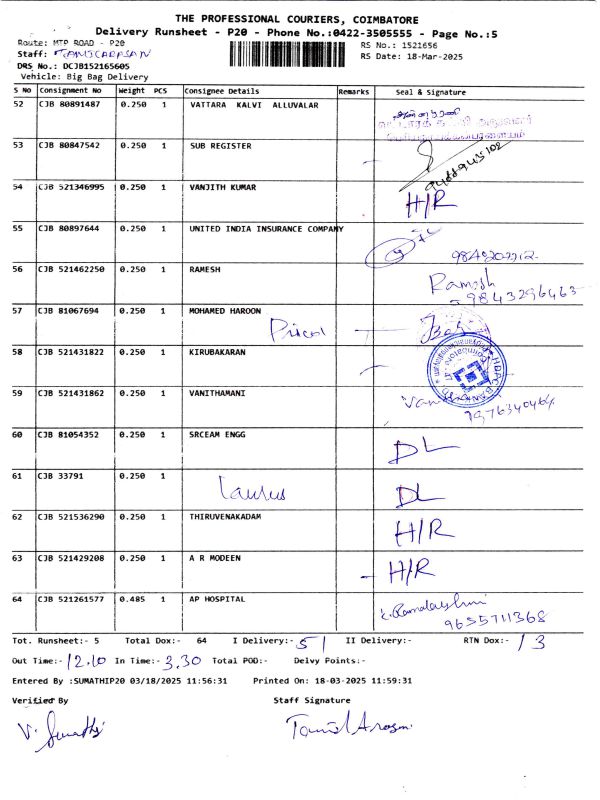 THE PROFESSIONAL COURIERS, COIMBATORE
Delivery Runsheet - P20 - Phone No.:0422-3505555 - Page No.:5
Route: MTP ROAD - P20
RS No.: 1521656
Staff: TAMILARASAN
RS Date: 18-Mar-2025
DRS No.: DCJB152165605
Vehicle: Big Bag Delivery
S No Consignment No Weight PCS Consignee Details Remarks Seal & Signature
52 CJB 80891487 0.250 1 VATTARA KALVI ALLUVALAR
53 CJB 80847542 0.250 1 SUB REGISTER
54 CJB 521346995 0.250 1 VANJITH KUMAR H/R
55 CJB 80897644 0.250 1 UNITED INDIA INSURANCE COMPANY
56 CJB 521462250 0.250 1 RAMESH Ramesh
9843296463
57 CJB 81067694 0.250 1 MOHAMED HAROON
Pricol
58 CJB 521431822 0.250 1 KIRUBAKARAN
59 CJB 521431862 0.250 1 VANITHAMANI
60 CJB 81054352 0.250 1 SRCEAM ENGG DL
61 CJB 33791 0.250 1 DL
Taurus
62 CJB 521536290 0.250 1 THIRUVENAKADAM H/R
63 CJB 521429208 0.250 1 A R MODEEN H/R
64 CJB 521261577 0.485 1 AP HOSPITAL
9655711368
Tot. Runsheet:- 5 Total Dox:- 64 I Delivery:- 51 II Delivery:- RTN Dox:- 13
Out Time:- 12.10 In Time:- 3.30 Total POD:- Delvy Points:-
Entered By :SUMATHIP20 03/18/2025 11:56:31 Printed On: 18-03-2025 11:59:31
Verified By Staff Signature
V. Sumathi Tamil Arasan